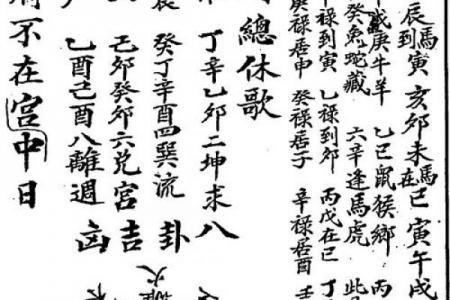 辰到馬寅 亥夘未馬在巳 寅午戌
戊庚牛羊 乙己鼠猴鄉 丙
癸兔蛇藏 六辛逢馬虎 此
祿到寅 乙祿到夘 丙戊在巳 丁
庚祿居申 癸祿居子 辛祿居酉 壬
總休歌
丁辛乙夘二坤求 八
癸丁辛酉四巽流 卦
己夘癸夘六兌宮 吉
乙酉己酉八離週 凶
不在宮中日